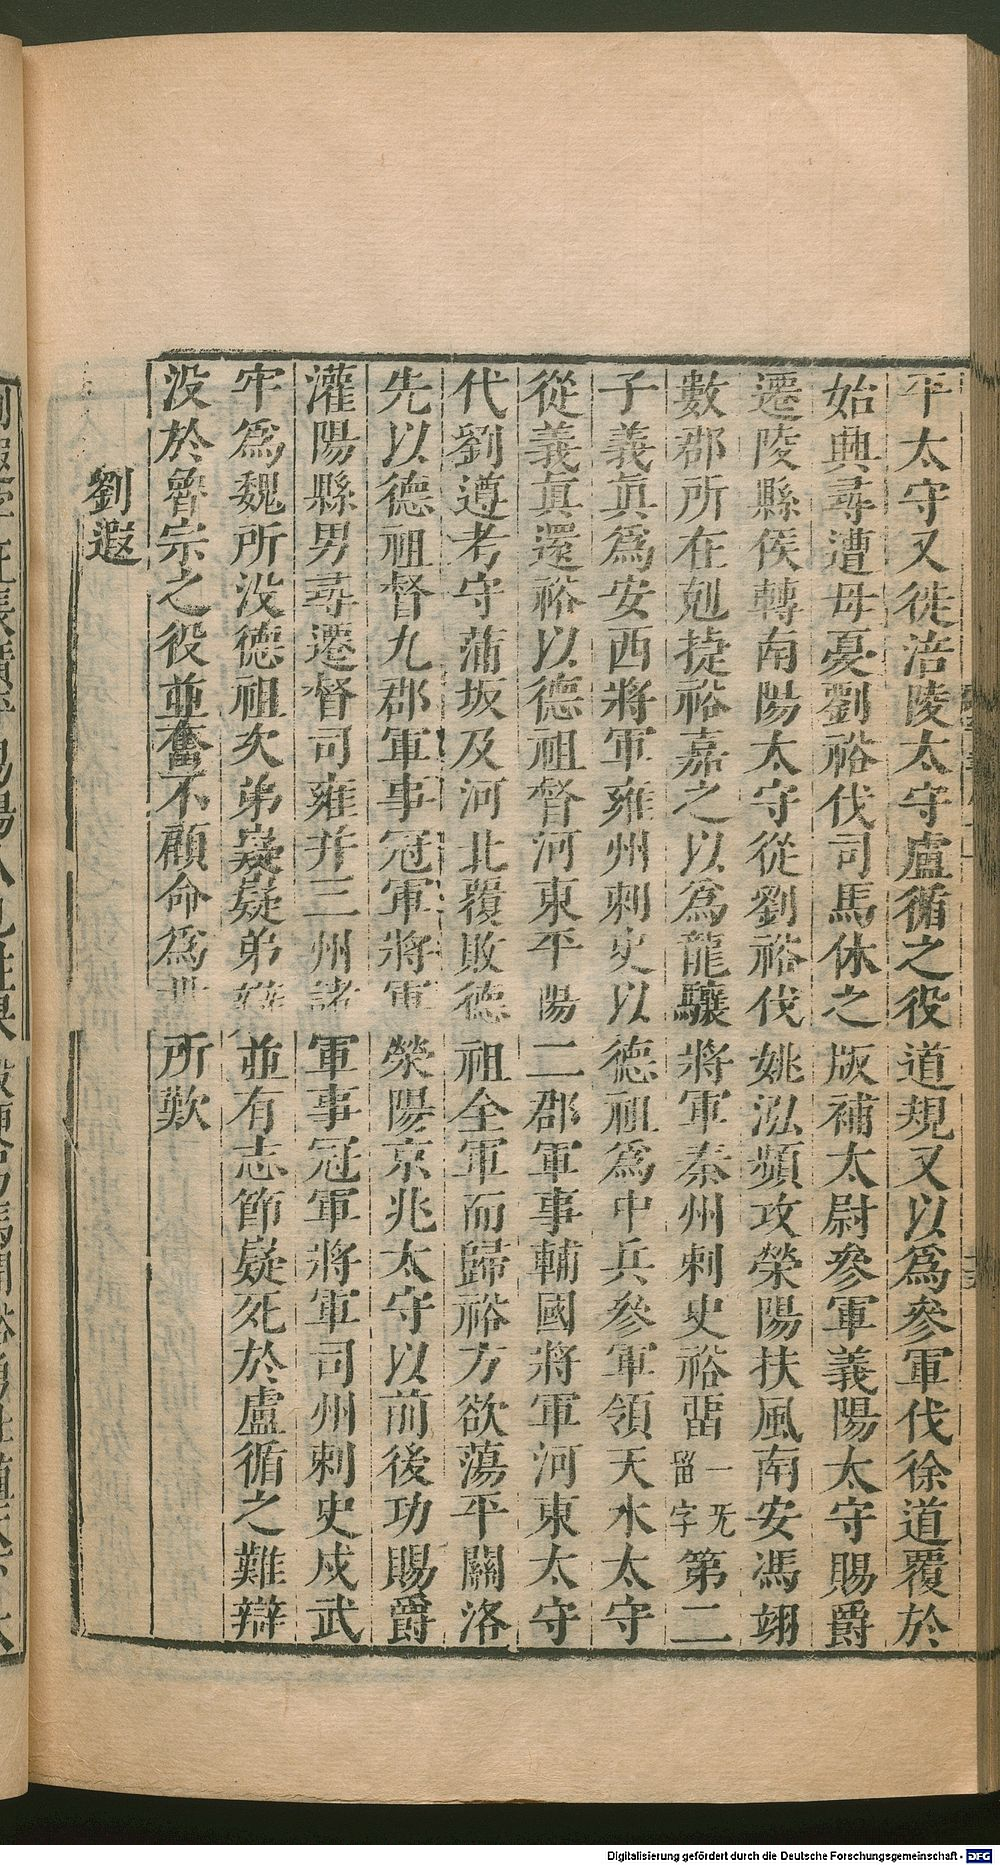 平太守又徙涪陵太守盧循之役道規又以爲參軍伐徐道覆於
始興尋遭母憂劉裕伐司馬休之版補太尉參軍義陽太守賜爵
遷陵縣侯轉南陽太守從劉裕伐姚泓頻攻榮陽扶風南安馮翊
數郡所在剋捷裕嘉之以爲龍驤將軍秦州刺史裕畱一旡畱字第二
子義眞爲安西將軍雍州刺史以德祖爲中兵參軍領天水太守
從義眞還裕以德祖督河東平陽二郡軍事輔國將軍河東太守
代劉遵考守蒲坂及河北覆敗德祖全軍而歸裕方欲蕩平關洛
先以德祖督九郡軍事冠軍將軍榮陽京兆太守以前後功賜爵
灌陽縣男尋遷督司雍并三州諸軍事冠軍將軍司州刺史戍武
牢爲魏所没德祖次弟嶷嶷弟辯並有志節嶷死於盧循之難辯
没於魯宗之役並奮不顧命爲世所歎
劉遐
Digitalisierung gefördert durch die Deutsche Forschungsgemeinschaft - DFG